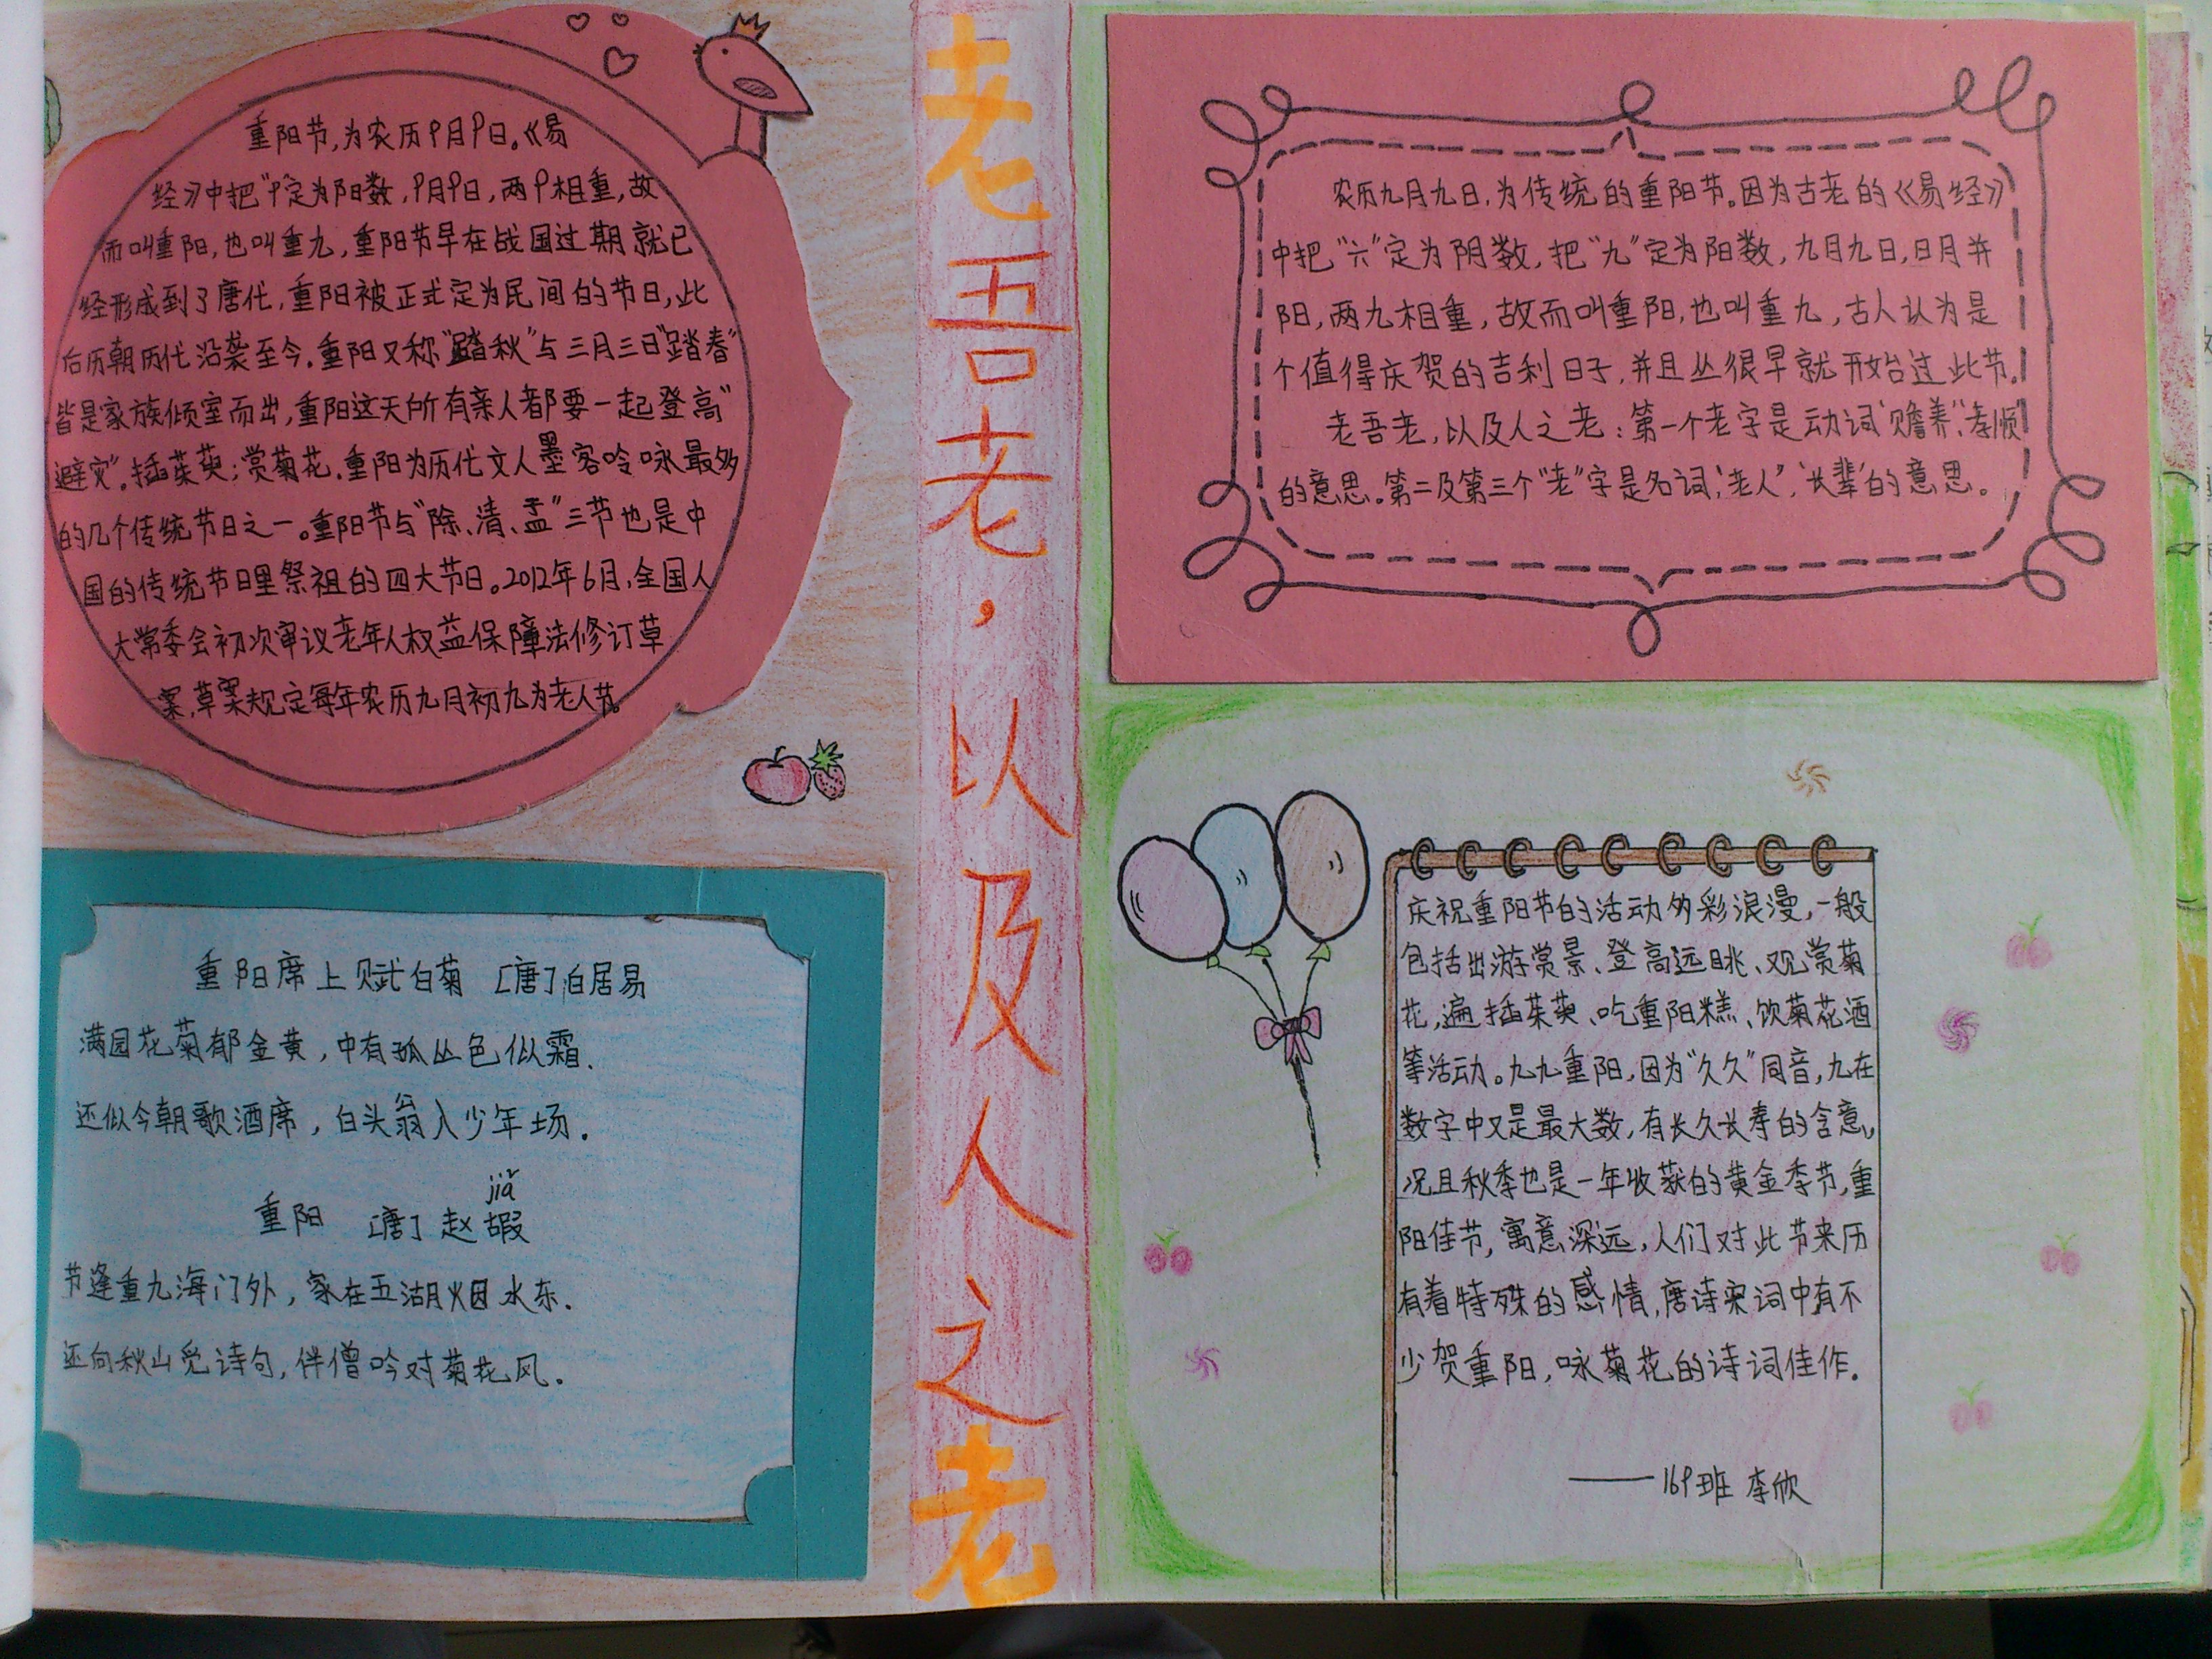 重阳节,为农历9月9日。《易
经》中把“9”定为阳数,9月9日,两9相重,故
而叫重阳,也叫重九,重阳节早在战国过期就已
经形成到了唐代,重阳被正式定为民间的节日,此
后历朝历代沿袭至今.重阳又称“踏秋”与三月三日“踏春”
皆是家族倾室而出,重阳这天所有亲人都要一起登高“
避灾”。插茱萸;赏菊花.重阳为历代文人墨客吟咏最多
的几个传统节日之一。重阳节与“除、清、盂”三节也是中
国的传统节日里祭祖的四大节日。2012年6月,全国人
大常委会初次审议老年人权益保障法修订草
案,草案规定每年农历九月初九为老人节。
重阳席上赋白菊 [唐]白居易
满园花菊郁金黄,中有孤丛色似霜.
还似今朝歌酒席,白头翁入少年场.
jiǎ
重阳 [唐] 赵嘏
节逢重九海门外,家在五湖烟水东.
还向秋山觅诗句,伴僧吟对菊花风.
老吾老,以及人之老
农历九月九日,为传统的重阳节。因为古老的《易经》
中把“六”定为阴数,把“九”定为阳数,九月九日,日月并
阳,两九相重,故而叫重阳,也叫重九,古人认为是
个值得庆贺的吉利日子,并且丛很早就开始过此节.
老吾老,以及人之老:第一个老字是动词“赡养”、“孝顺”
的意思。第二及第三个“老”字是名词,‘老人’,‘长辈’的意思。
庆祝重阳节的活动多彩浪漫,一般
包括出游赏景、登高远眺、观赏菊
花,遍插茱萸、吃重阳糕、饮菊花酒
等活动。九九重阳,因为“久久”同音,九在
数字中又是最大数,有长久长寿的含意,
况且秋季也是一年收获的黄金季节,重
阳佳节,寓意深远,人们对此节来历
有着特殊的感情,唐诗宋词中有不
少贺重阳,咏菊花的诗词佳作.
——169班 李欣